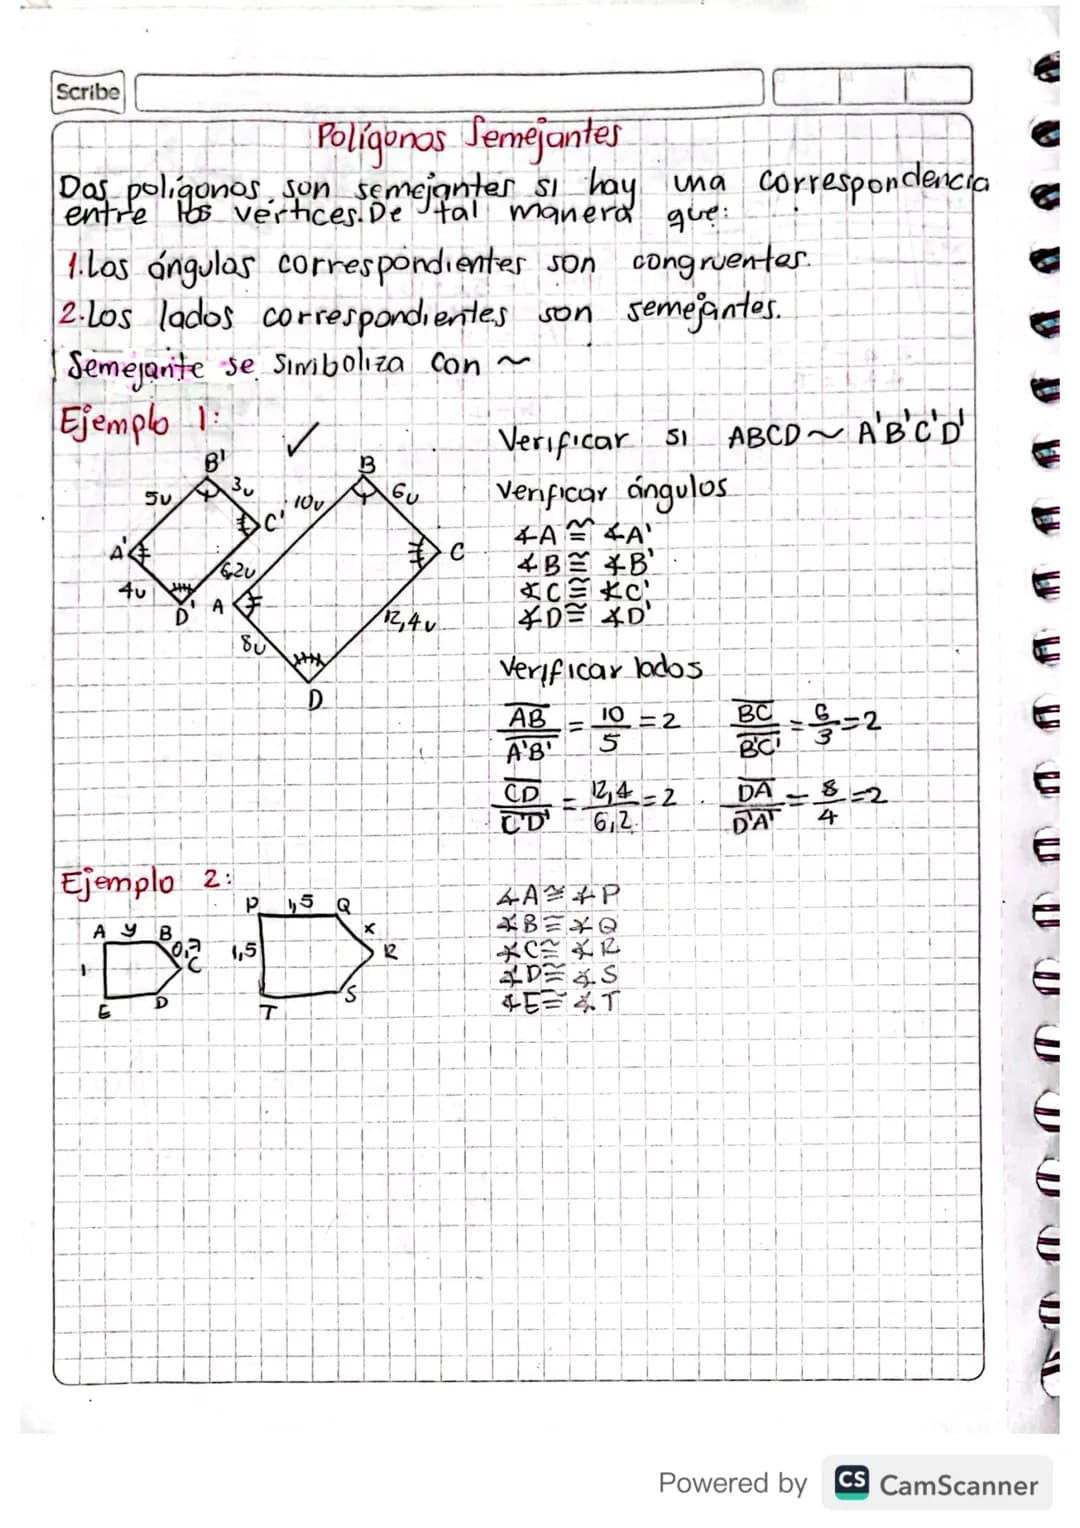 Scribe
Polígonos Semejantes
Dos polígonos son semejantes si hay una correspondencia
entre los vértices. De tal manera que:
1. Los ángulos correspondientes son congruentes.
2. Los lados correspondientes son semejantes.
Semejante se simboliza con ~
Ejemplo 1: ✓
Verificar si ABCD ~ A'B'C'D'
B'
5u
3u
C'
A'
6,2u
4u
D'
B
10u
6u
C
A
12,4u
8u
D
Verificar ángulos
∡A ≅ ∡A'
∡B ≅ ∡B'
∡C ≅ ∡C'
∡D ≅ ∡D'
Verificar lados
AB/A'B' = 10/5 = 2 BC/B'C' = 6/3 = 2
CD/C'D' = 12,4/6,2 = 2 . DA/D'A' = 8/4 = 2
Ejemplo 2:
A y B
0,7
C
1
E D
P 1,5 Q
x
1,5
R
S
T
∡A ≅ ∡P
∡B ≅ ∡Q
∡C ≅ ∡R
∡D ≅ ∡S
∡E ≅ ∡T
Powered by CS CamScanner